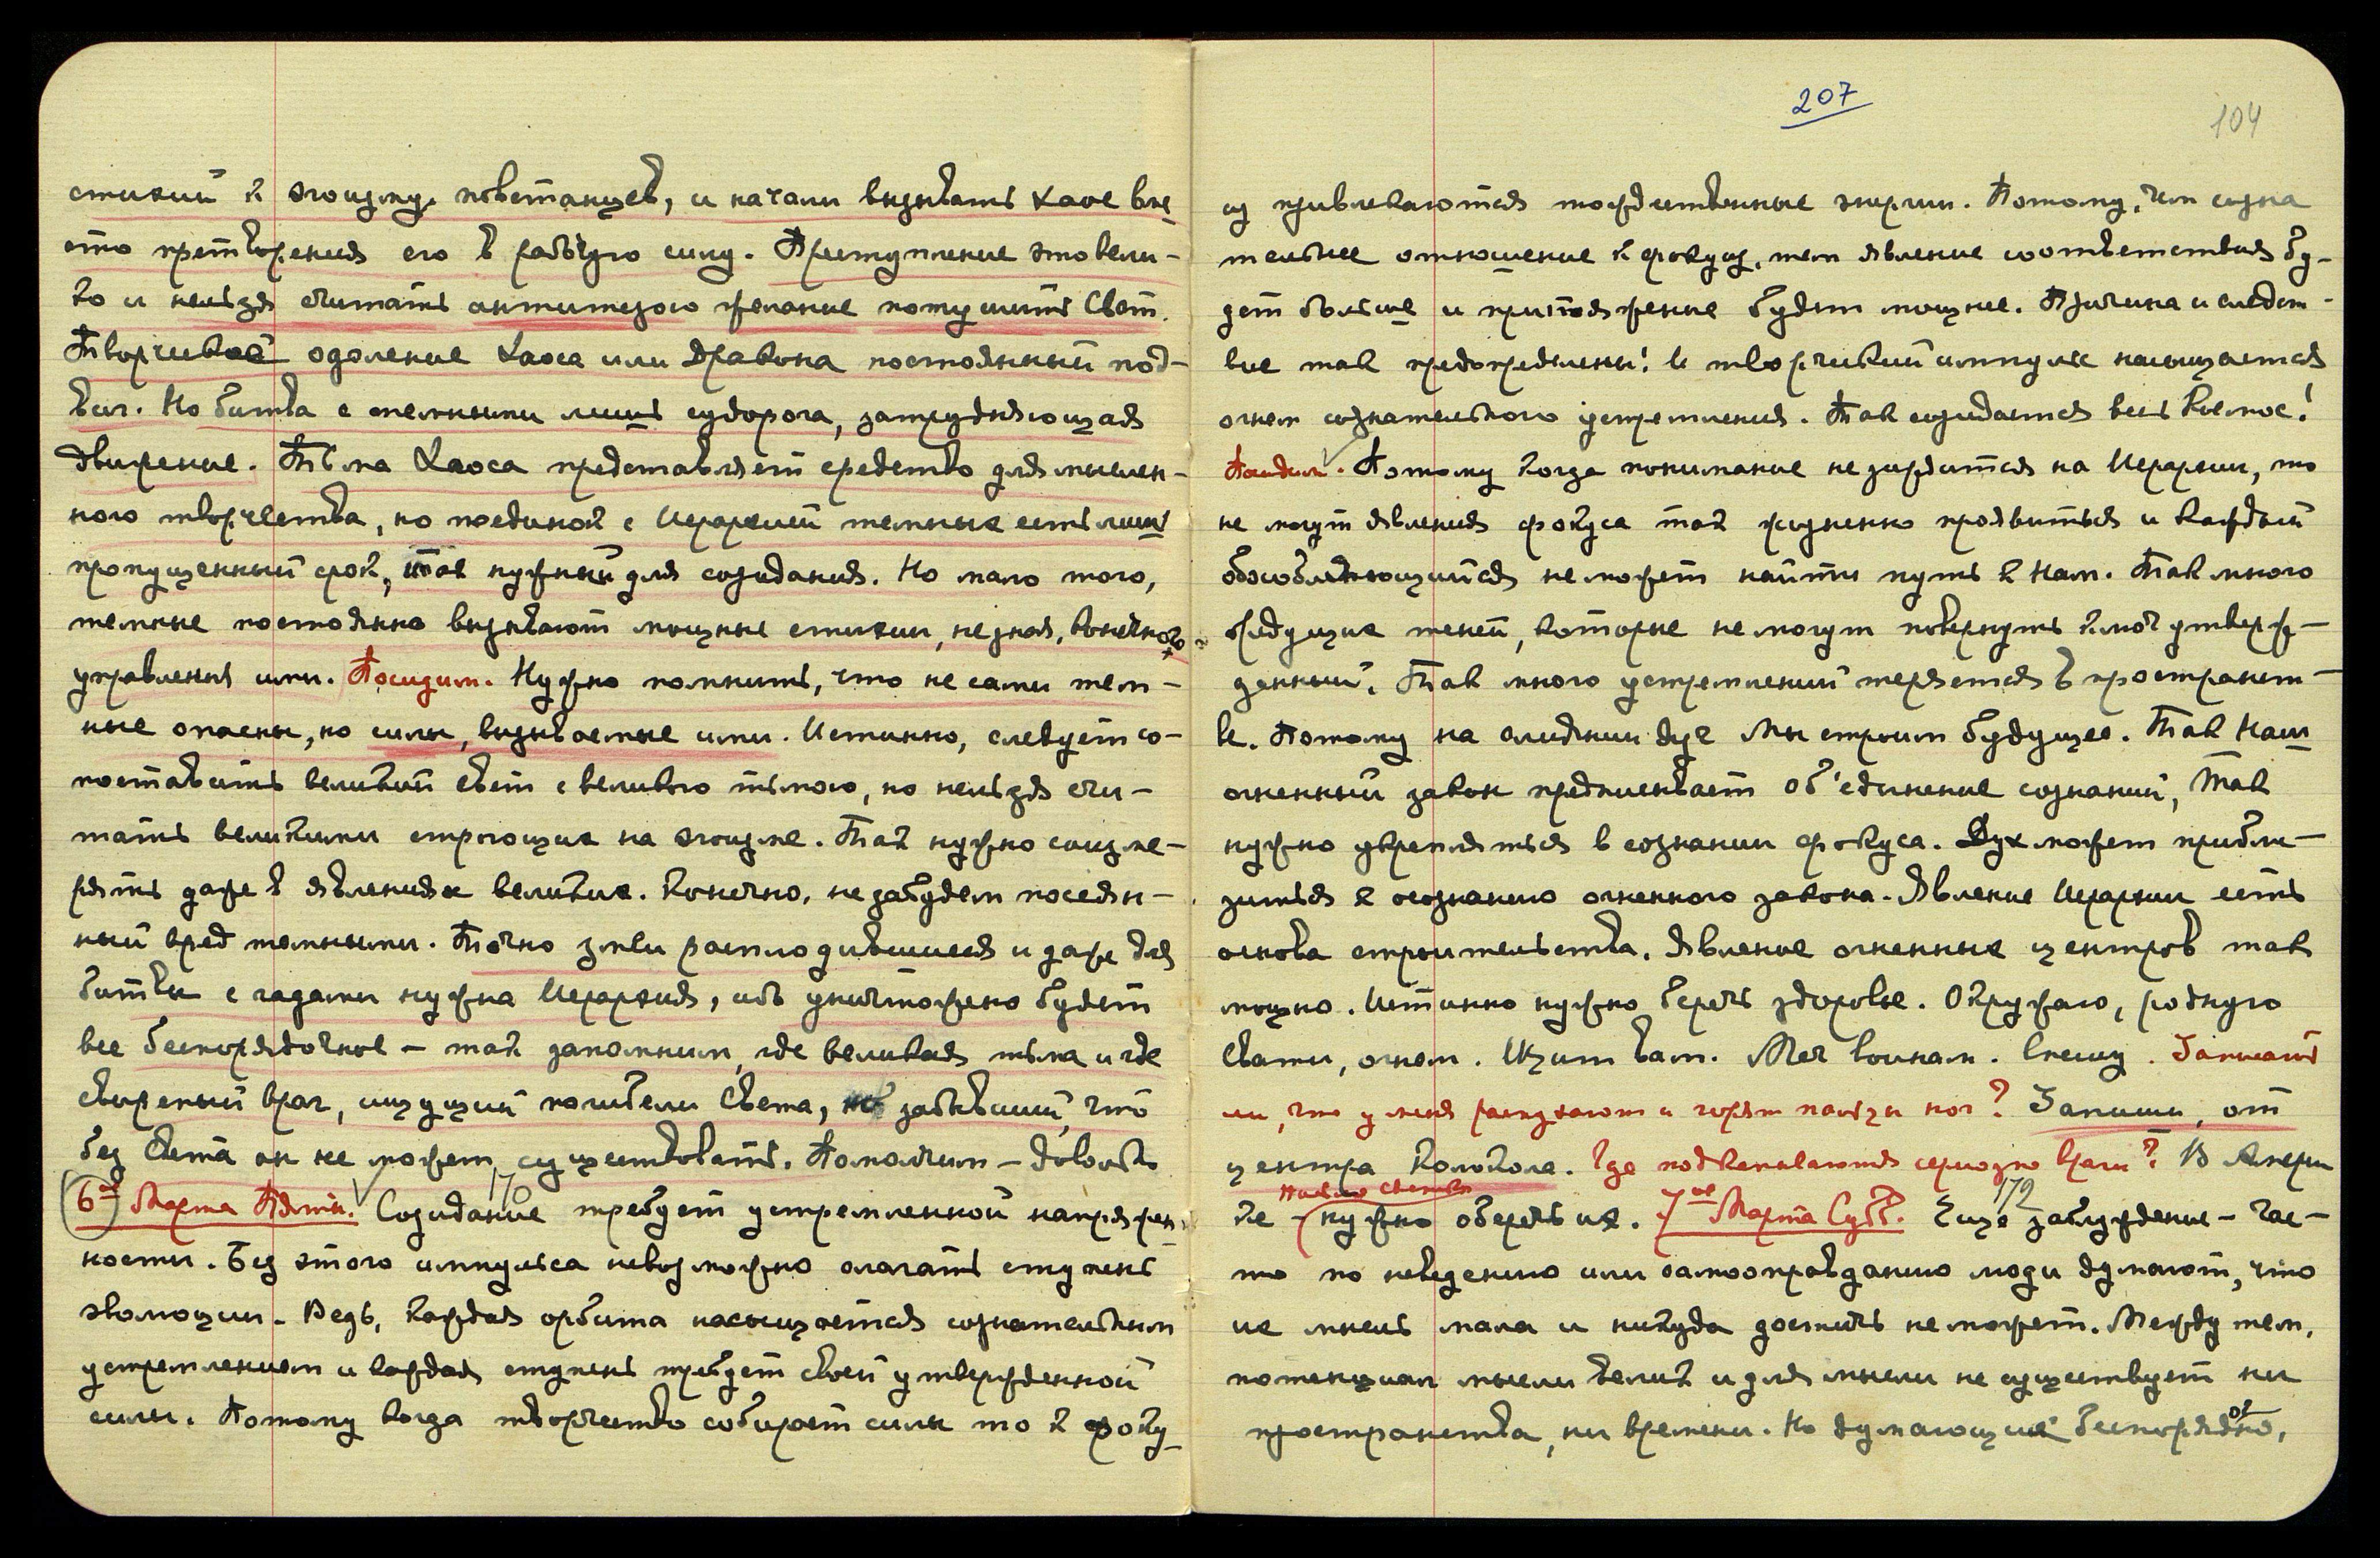 стихий к эгоизму повстанцев, и начали вызывать хаос вме
сто претворения его в рабочую силу. Преступление это вели-
ко и нельзя считать антитезою желание потушить Свет.
Творческое одоление Хаоса или Дракона постоянный под-
виг. Но битва с темными лишь судорога, затрудняющая
движение. Тьма Хаоса представляет средство для мыслен-
ного творчества, но поединок с Иерархией темных есть лишь
пропущенный срок, так нужный для созидания. Но мало того,
темные постоянно вызывают мощные стихии, не зная, конечно,
управления ими. Посидим. Нужно помнить, что не сами тем-
ные опасны, но силы, вызываемые ими. Истинно, следует со-
поставить великий свет с великою тьмою, но нельзя счи-
тать великими строющих на эгоизме. Так нужно соизме-
рять даже в явлениях великих. Конечно, не забудем посеян-
ный вред темными. Точно змеи расплодившиеся и даже для
битвы с гадами нужна Иерархия, ибо уничтожено будет
все беспорядочное – так запомним, где великая тьма и где
свирепый враг, ищущий погибели Света, забывший, что
без Света он не может существовать. Помолчим – довольно
6ое Марта Пятн. 171 Созидание требует устремленной напряжен-
ности. Без этого импульса невозможно слагать ступень
эволюции. Ведь, каждая орбита насыщается сознательным
устремлением и каждая ступень требует своей утвержденной
силы. Потому когда творчество собирает силы то к фоку-
207
104
су привлекаются тождественные энергии. Потому, чем созна
тельнее отношение к фокусу, тем явление соответствия бу-
дет больше и притяжение будет мощнее. Причина и следст-
вие так предопределены! И творческий импульс насыщается
огнем сознательного устремления. Так созидается весь Космос!
Посидим. Потому когда понимание не зиждится на Иерархии, то
не могут явления фокуса так жизненно проявиться и каждый
обособляющийся не может найти путь к Нам. Так много
блуждущих теней, которые не могут повернуть ключ утверж-
денный. Так много устремлений теряется в пространст-
ве. Потому на слиянии дух Мы строим будущее. Так Наш
огненный закон предписывает об'единение сознаний, Так
нужно укрепляться в сознании фокуса. Дух может прибли-
зиться к осознанию огненного закона. Явление Иерархии есть
основа строительства. Явление огненных центров так
мощно. Истинно нужно беречь здоровье. Окружаю, родную
Свати, огнем. Щит вам. Меч воинам. Спешу. Записать
ли, что у меня распухают и горят пальцы ног? Запиши, от
центра Колокола. Где подкапываются серьезно враги? В Амери
ке – нужно оберечь их. 7ое Марта Субб. 172 Еще заблуждение – час-
то по неведению или самооправданию люди думают, что
их мысль мала и никуда достичь не может. Между тем,
потенциал мысли велик и для мысли не существует ни
пространства, ни времени. Но думающие беспорядочно,